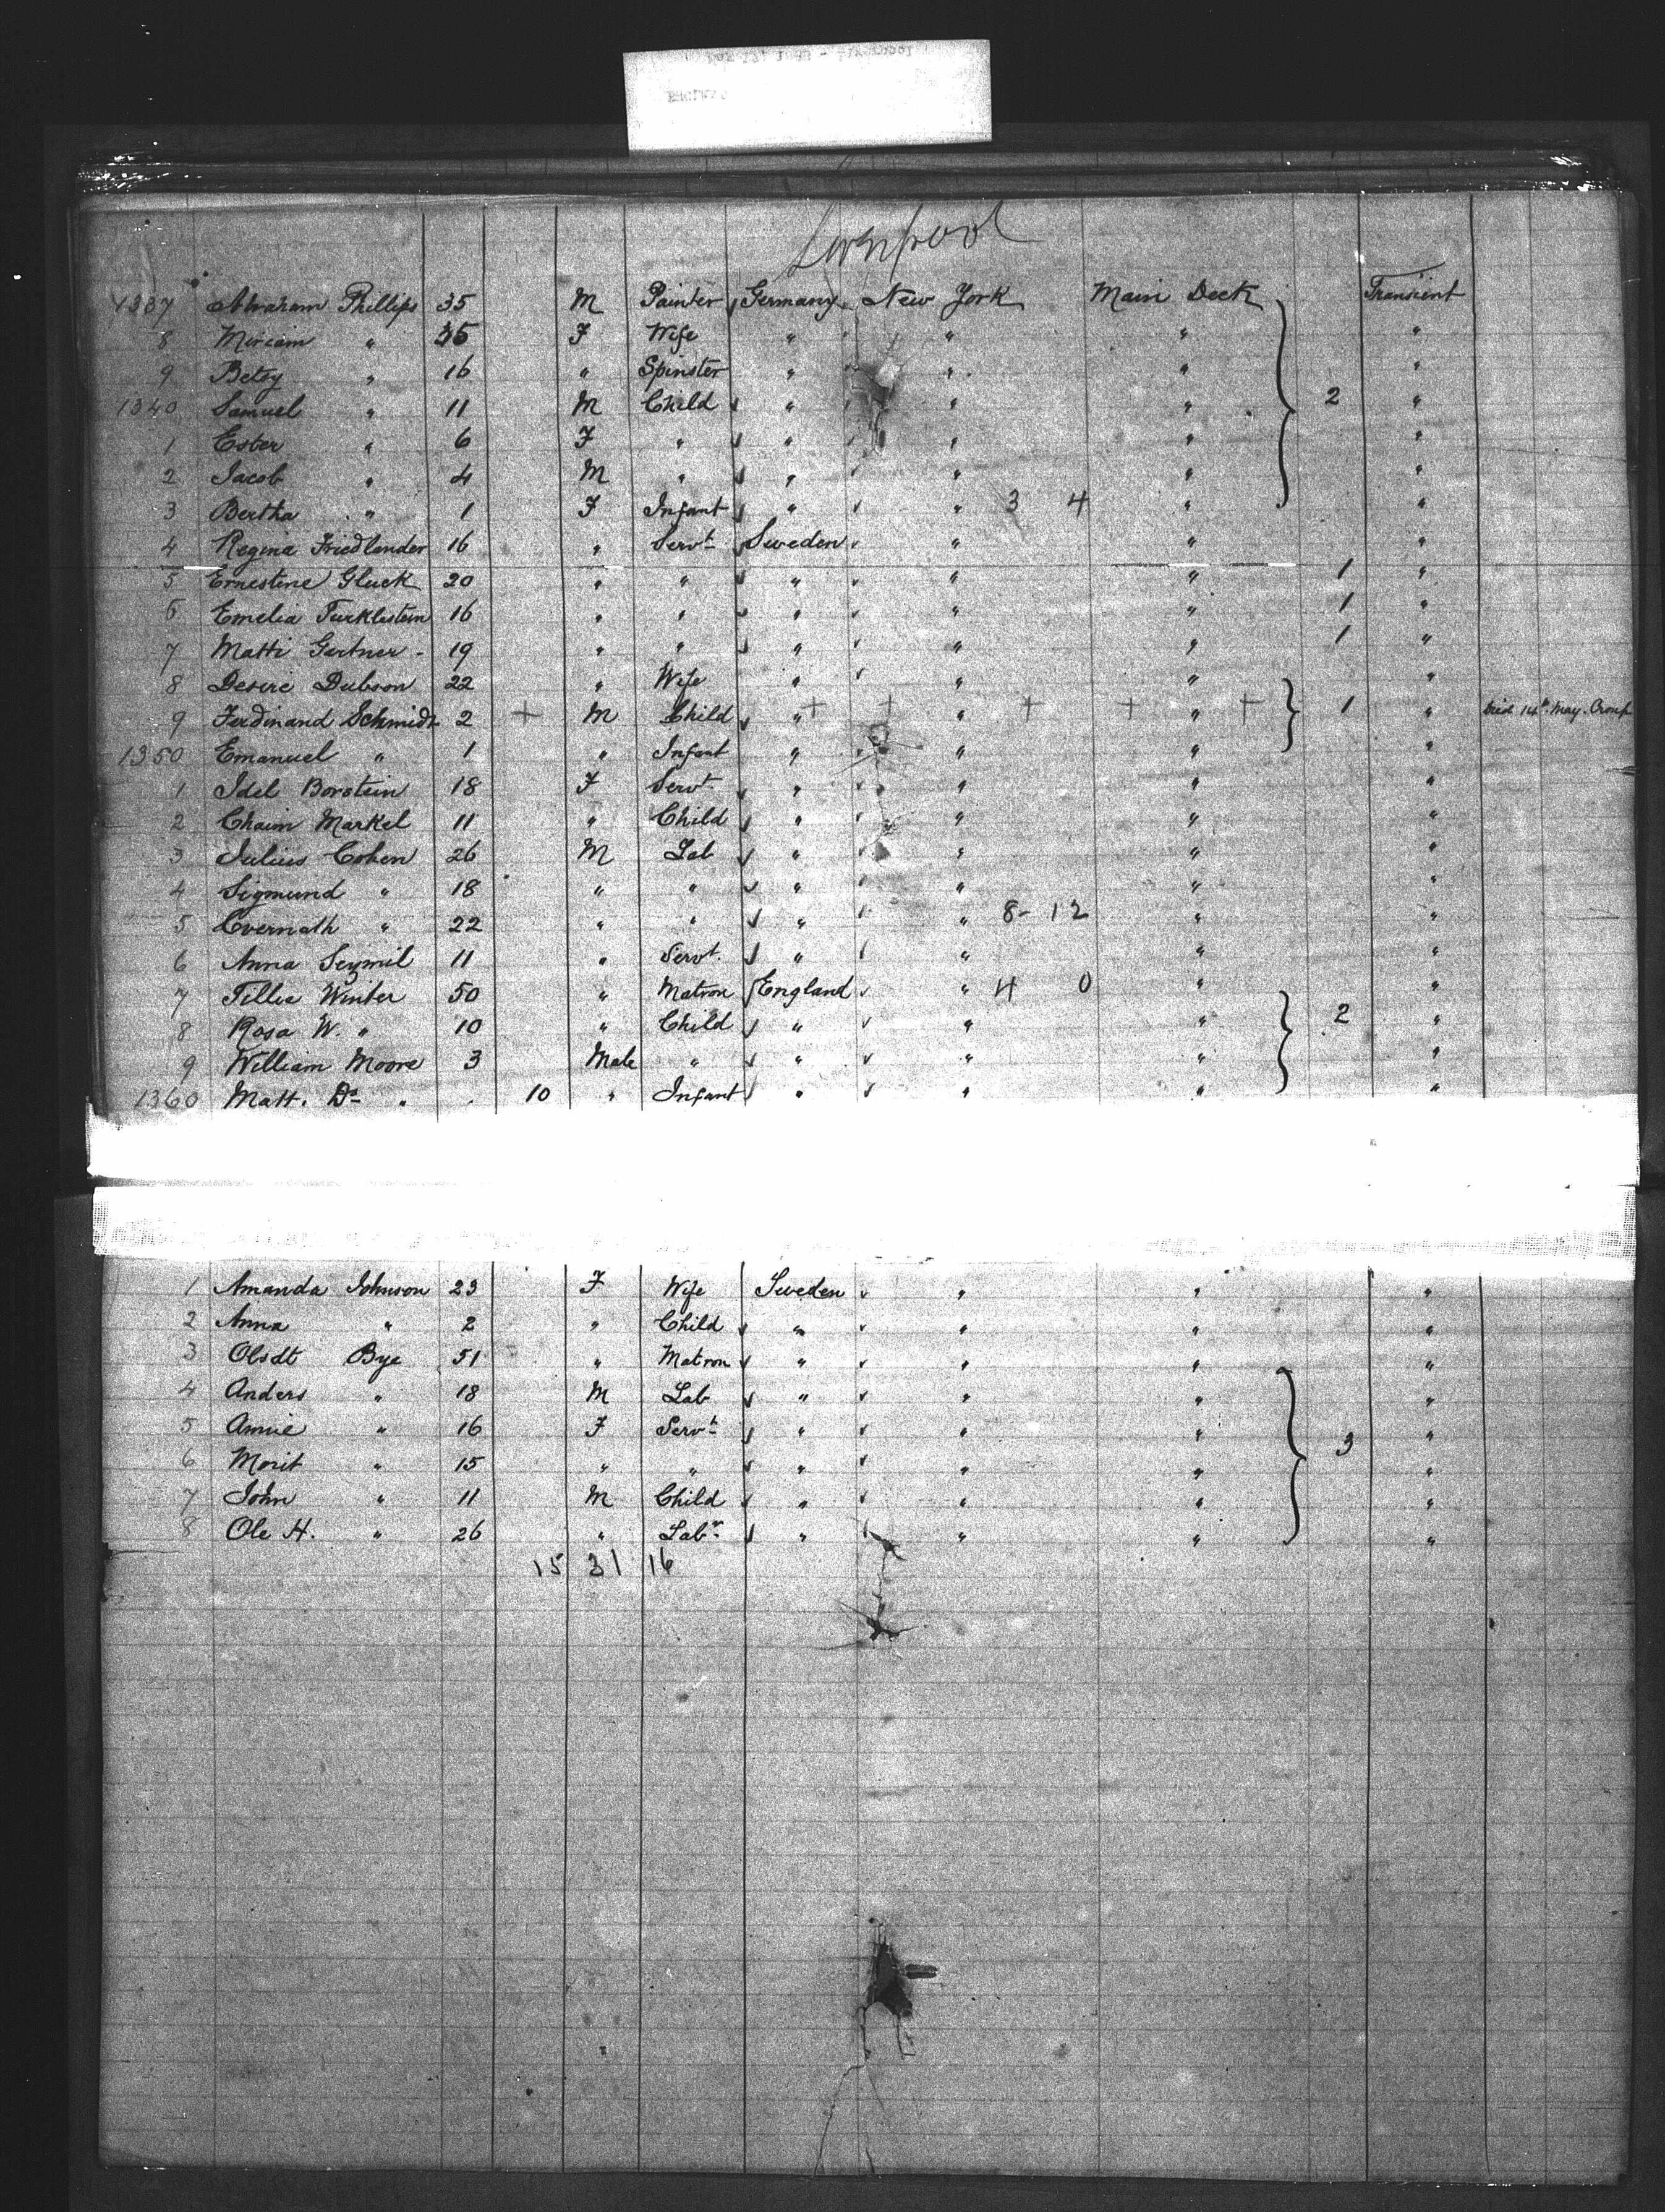 Liverpool
1337 Abraham Phillips 35 M Painter Germany New York Main Deck Transient
8 Miriam " 35 F Wife " " " "
9 Betsy " 16 " Spinster " " " "
1340 Samuel " 11 M Child " " " 2 "
1 Ester " 6 F " " " " "
2 Jacob " 4 M " " " " "
3 Bertha " 1 F Infant " " 3 4 " "
4 Regina Friedlander 16 " Servt Sweden " " "
5 Ernestine Gluck 20 " " " " " 1 "
6 Emelia Turklestein 16 " " " " " 1 "
7 Matti Gertner - 19 " " " " " 1 "
8 Desire Dubson 22 " Wife " " " "
9 Ferdinand Schmidt 2 + M Child " + + " + + " + 1 " Died 14th May. Croup
1350 Emanuel " 1 " Infant " " " "
1 Idel Borstein 18 F Servt " " " "
2 Chaim Markel 11 " Child " " " "
3 Julius Cohen 26 M Lab " " " "
4 Sigmund " 18 " " " " " "
5 " 22 " " " " 8-12 " "
6 Anna 11 " Servt. " " " "
7 Tillie Winter 50 " Matron England " 4 0 " "
8 Rosa W. " 10 " Child " " " 2 "
9 William Moore 3 Male " " " " "
1360 Matt. Do " . 10 " Infant " " " "
1 Amanda Johnson 23 F Wife Sweden " " "
2 Anna " 2 " Child " " " "
3 Olsdt Bye 51 " Matron " " " "
4 Anders " 18 M Lab " " " "
5 Annie " 16 F Servt " " " 3 "
6 Morit " 15 " " " " " "
7 John " 11 M Child " " " "
8 Ole H. " 26 " Labr " " " "
15 31 16